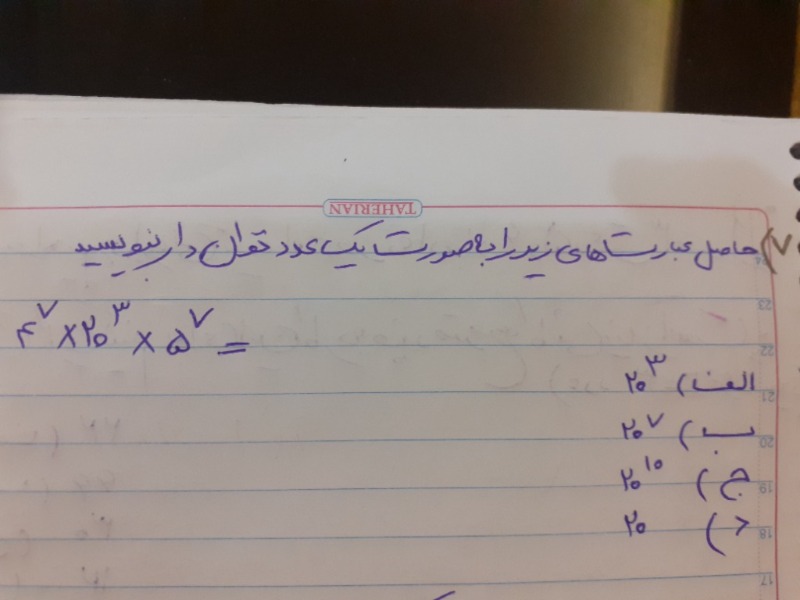 TAHERIAN
۷) حاصل عبارت‌های زیر را به صورت یک عدد توان دار بنویسید
۴^۷ × ۲۰^۳ × ۵^۷ =
الف) ۲۰^۳
ب) ۲۰^۷
ج) ۲۰^۱۰
د) ۲۰
23
22
21
20
19
18
17